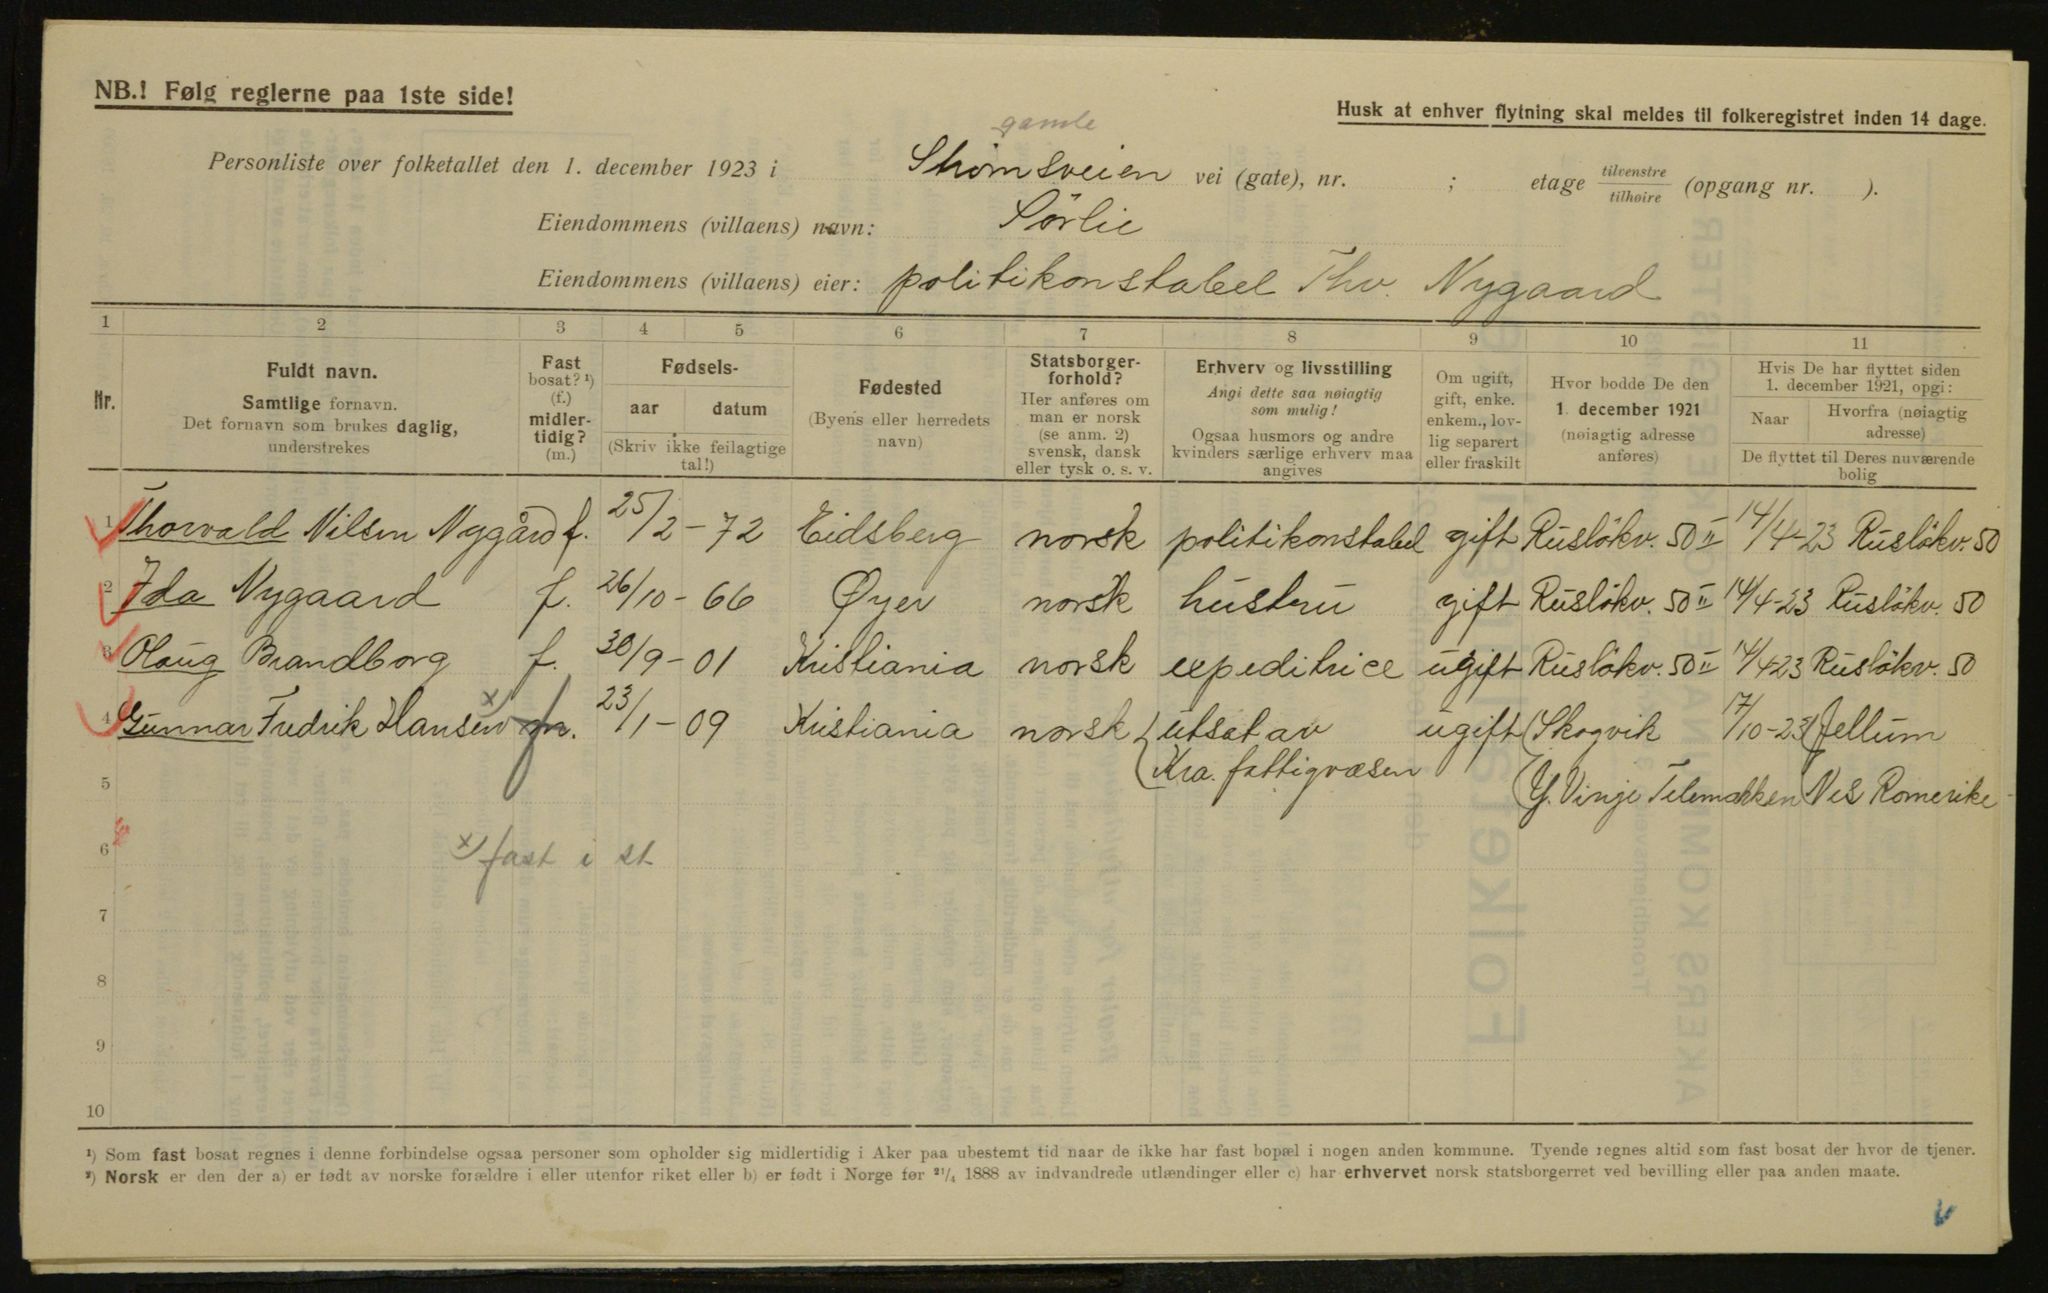 NB.! Følg reglerne paa 1ste side!
Husk at enhver flytning skal meldes til folkeregistret inden 14 dage.
gamle
Personliste over folketallet den 1. december 1923 i Strömsveien vei (gate), nr. ; etage tilvenstre/tilhøire (opgang nr. ).
Eiendommens (villaens) navn: Sörlie
Eiendommens (villaens) eier: politikonstabel Thv. Nygaard
1 2 3 4 5 6 7 8 9 10 11
Nr.
Fuldt navn.
Samtlige fornavn.
Det fornavn som brukes daglig,
understrekes
Fast
bosat? ¹)
(f.)
midler-
tidig?
(m.)
Fødsels-
aar datum
(Skriv ikke feilagtige
tal!)
Fødested
(Byens eller herredets
navn)
Statsborger-
forhold?
Her anføres om
man er norsk
(se anm. 2)
svensk, dansk
eller tysk o. s. v.
Erhverv og livsstilling
Angi dette saa nøiagtig
som mulig!
Ogsaa husmors og andre
kvinders særlige erhverv maa
angives
Om ugift,
gift, enke.
enkem., lov-
lig separert
eller fraskilt
Hvor bodde De den
1. december 1921
(nøiagtig adresse
anføres)
Hvis De har flyttet siden
1. december 1921, opgi:
Naar Hvorfra (nøiagtig
adresse)
De flyttet til Deres nuværende
bolig
1 Thorvald Nilsen Nygård f. 25/2-72 Eidsberg norsk politikonstabel gift Rüslökv. 50 II 14/4-23 Rüslökv. 50
2 Ida Nygaard f. 26/10-66 Øyer norsk hüstrü gift Rüslökv. 50 II 14/4-23 Rüslökv. 50
3 Olaüg Brandborg f. 30/9-01 Kristiania norsk expeditrice ügift Rüslökv. 50 II 14/4-23 Rüslökv. 50
4 Günnar Fredrik Hansen x) 23/1-09 Kristiania norsk ütsat av ügift Skogvik 17/10-23 Fjellüm
Kra. fattigvæsen Y. Vinje Telemarken Nes Romerike
5
6
x) fast i st
7
8
9
10
¹) Som fast bosat regnes i denne forbindelse ogsaa personer som opholder sig midlertidig i Aker paa ubestemt tid naar de ikke har fast bopæl i nogen anden kommune. Tyende regnes altid som fast bosat der hvor de tjener.
²) Norsk er den der a) er født av norske forældre i eller utenfor riket eller b) er født i Norge før ²¹/₄ 1888 av indvandrede utlændinger eller c) har erhvervet norsk statsborgerret ved bevilling eller paa anden maate.